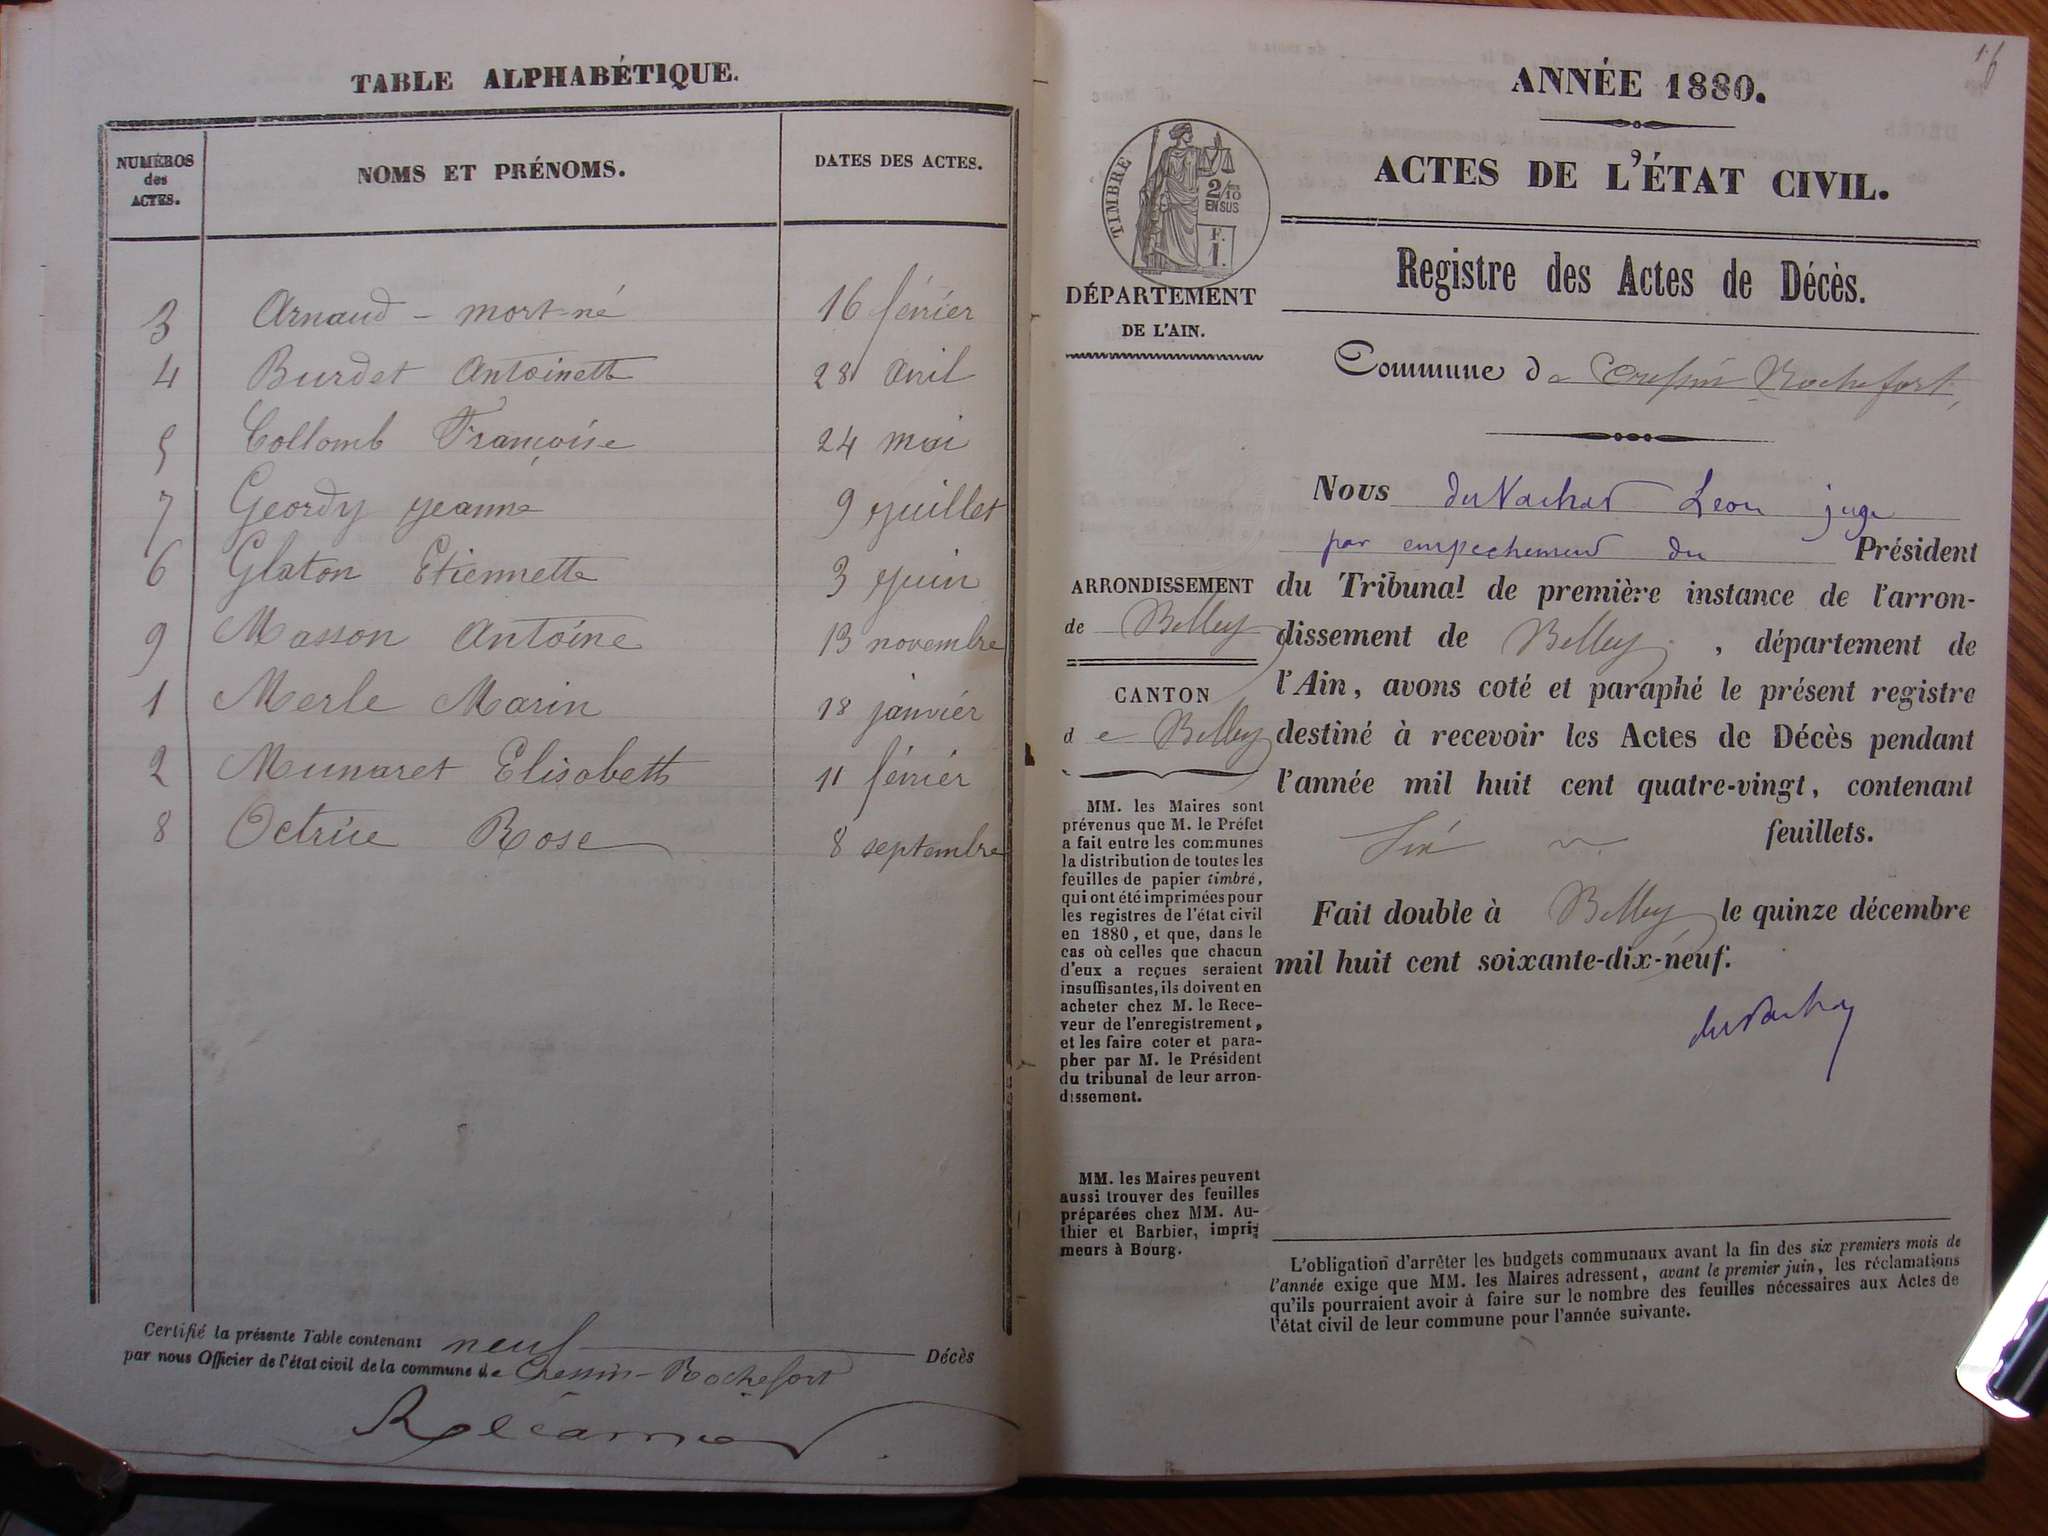 TABLE ALPHABÉTIQUE.
NUMÉROS des ACTES. NOMS ET PRÉNOMS. DATES DES ACTES.
3 Arnaud - mort-né 16 février
4 Burdet Antoinette 28 avril
5 Collomb Françoise 24 mai
7 Geordy Jeanne 9 juillet
6 Glaton Etiennette 3 juin
9 Masson Antoine 13 novembre
1 Merle Marin 18 janvier
2 Munaret Elisabeth 11 février
8 Octrue Rose 8 septembre
Certifié la présente Table contenant neuf Décès
par nous Officier de l'état civil de la commune de Cressin-Rochefort
Récamier
16
ANNÉE 1880.
ACTES DE L'ÉTAT CIVIL.
TIMBRE
2/10
EN SUS
F.
1.
DÉPARTEMENT
DE L'AIN.
ARRONDISSEMENT
de Belley
CANTON
de Belley
MM. les Maires sont
prévenus que M. le Préfet
a fait entre les communes
la distribution de toutes les
feuilles de papier timbré,
qui ont été imprimées pour
les registres de l'état civil
en 1880, et que, dans le
cas où celles que chacun
d'eux a reçues seraient
insuffisantes, ils doivent en
acheter chez M. le Rece-
veur de l'enregistrement,
et les faire coter et para-
pher par M. le Président
du tribunal de leur arron-
dissement.
MM. les Maires peuvent
aussi trouver des feuilles
préparées chez MM. Au-
thier et Barbier, impri-
meurs à Bourg.
Registre des Actes de Décès.
Commune de Cressin Rochefort,
Nous du Vachat Leon juge
par empechement du Président
du Tribunal de première instance de l'arron-
dissement de Belley, département de
l'Ain, avons coté et paraphé le présent registre
destiné à recevoir les Actes de Décès pendant
l'année mil huit cent quatre-vingt, contenant
six feuillets.
Fait double à Belley le quinze décembre
mil huit cent soixante-dix-neuf.
du Vachat
L'obligation d'arrêter les budgets communaux avant la fin des six premiers mois de
l'année exige que MM. les Maires adressent, avant le premier juin, les réclamations
qu'ils pourraient avoir à faire sur le nombre des feuilles nécessaires aux Actes de
l'état civil de leur commune pour l'année suivante.